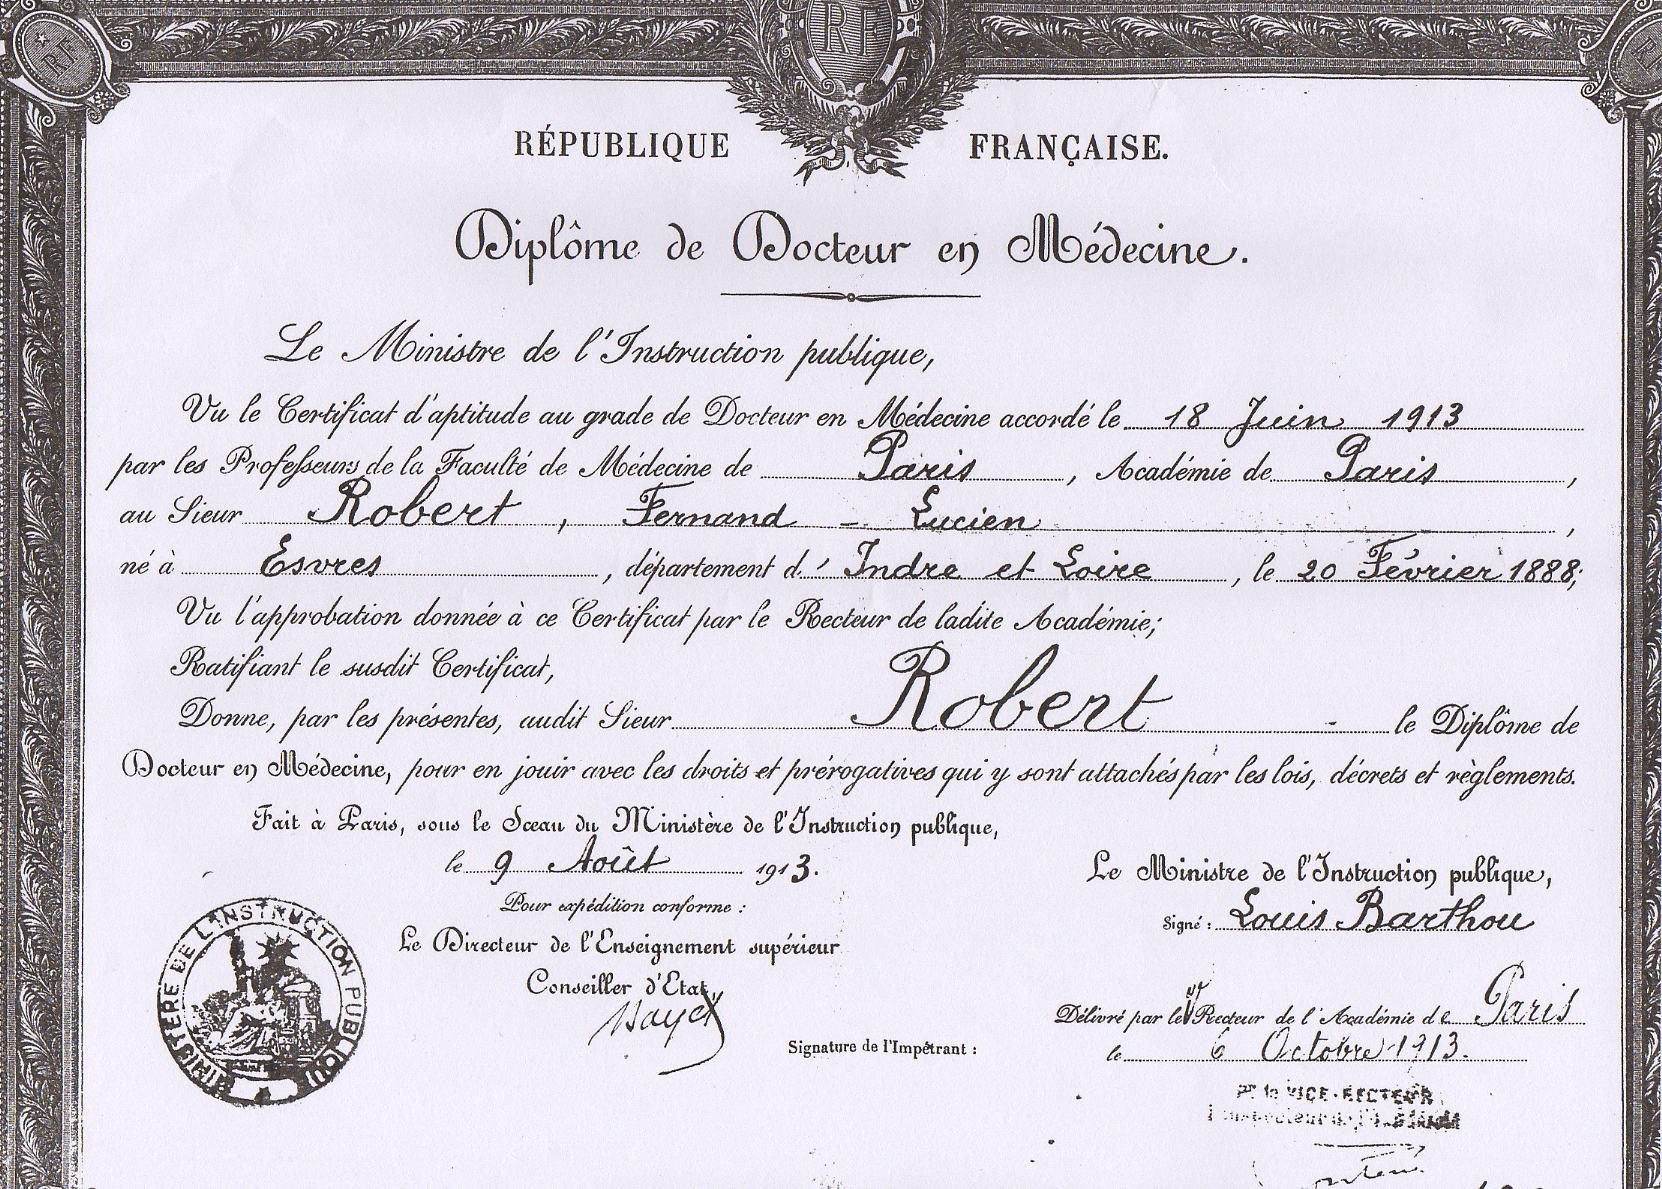 RF
RF
RÉPUBLIQUE FRANÇAISE.
Diplôme de Docteur en Médecine.
Le Ministre de l'Instruction publique,
Vu le Certificat d'aptitude au grade de Docteur en Médecine accordé le 18 Juin 1913
par les Professeurs de la Faculté de Médecine de Paris, Académie de Paris,
au Sieur Robert, Fernand - Lucien,
né à Esvres, département d' Indre et Loire, le 20 Février 1888;
Vu l'approbation donnée à ce Certificat par le Recteur de ladite Académie;
Ratifiant le susdit Certificat,
Donne, par les présentes, audit Sieur Robert - le Diplôme de
Docteur en Médecine, pour en jouir avec les droits et prérogatives qui y sont attachés par les lois, décrets et règlements.
Fait à Paris, sous le Sceau du Ministère de l'Instruction publique,
le 9 Août 1913.
Pour expédition conforme :
Le Directeur de l'Enseignement supérieur
Conseiller d'Etat,
MINISTÈRE DE L'INSTRUCTION PUBLIQUE
Signature de l'Impétrant :
Le Ministre de l'Instruction publique,
Signé : Louis Barthou
Délivré par le V Recteur de l'Académie de Paris
le 6 Octobre 1913.
Pr le VICE-RECTEUR